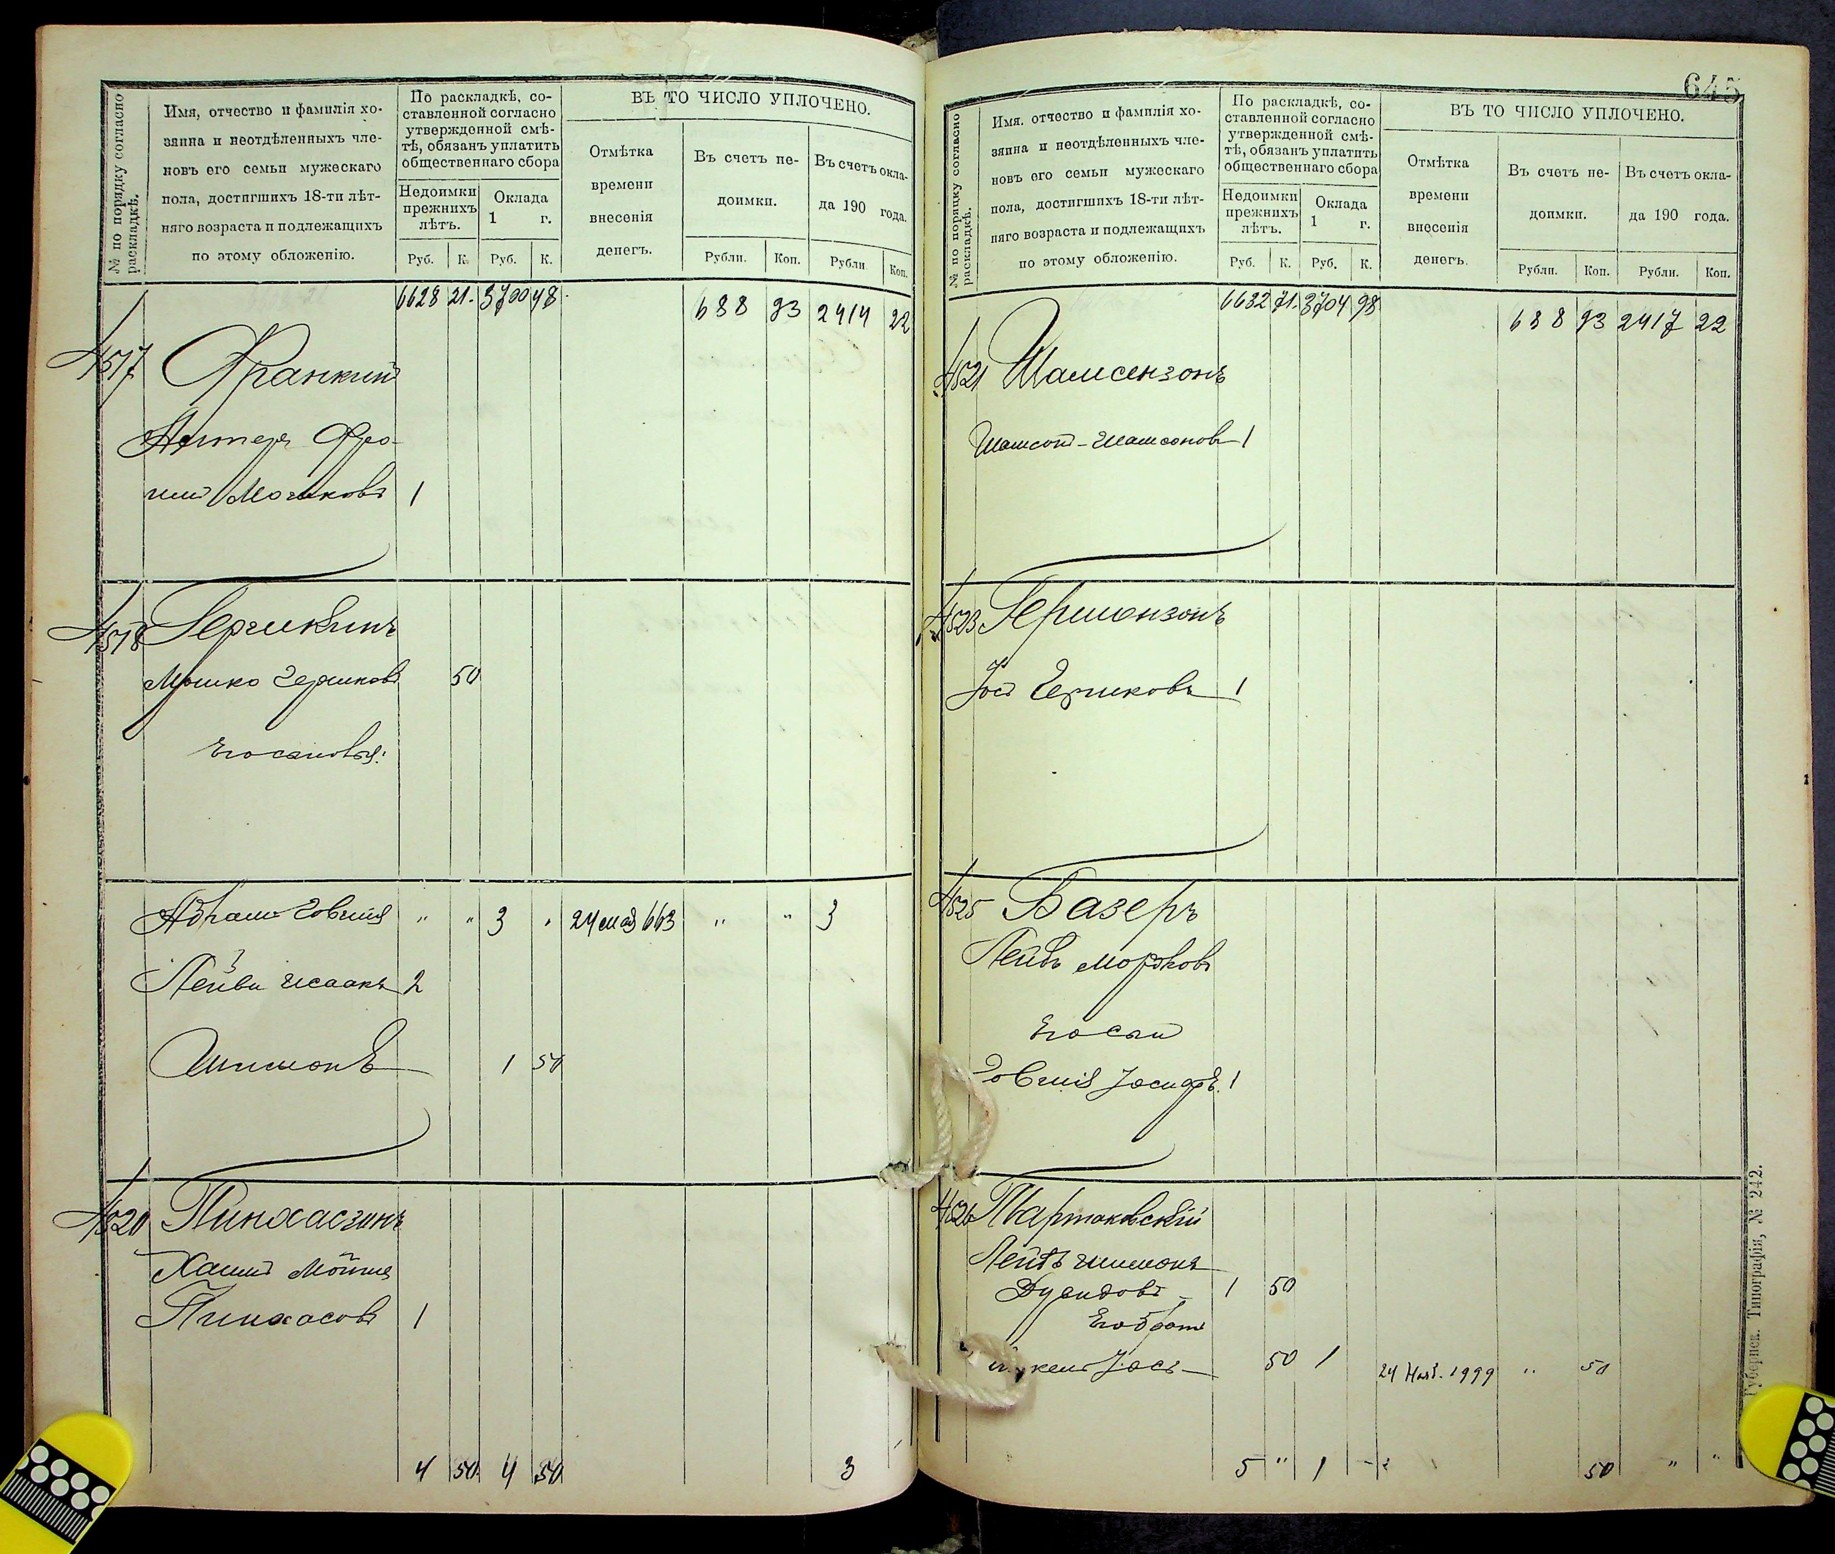 № по порядку согласно раскладкѣ.
Имя, отчество и фамилія хо-
зяина и неотдѣленныхъ чле-
новъ его семьи мужескаго
пола, достигшихъ 18-ти лѣт-
няго возраста и подлежащихъ
по этому обложенію.
По раскладкѣ, со-
ставленной согласно
утвержденной смѣ-
тѣ, обязанъ уплатить
общественнаго сбора
Недоимки
прежнихъ
лѣтъ.
Оклада
1 г.
Руб. К. Руб. К.
ВЪ ТО ЧИСЛО УПЛОЧЕНО.
Отмѣтка
времени
внесенія
денегъ.
Въ счетъ не-
доимки.
Въ счетъ окла-
да 190 года.
Рубли. Коп. Рубли Коп.
6628 21. 3700 48 688 93 2414 22
4517 Франкин
Мошковъ 1
4518 Гершкинъ
Мошко Гершковъ 50
Его сыновья:
Абрамъ Говшія " " 3 " 24 мая 663 " " 3
Лейви Исаакъ 2
Шимонъ 1 50
4520 Пинхасзинъ
Хаимъ Мойша
Пинхасовъ 1
4 50 4 50 3
645
№ по порядку согласно раскладкѣ.
Имя, отчество и фамилія хо-
зяина и неотдѣленныхъ чле-
новъ его семьи мужескаго
пола, достигшихъ 18-ти лѣт-
няго возраста и подлежащихъ
по этому обложенію.
По раскладкѣ, со-
ставленной согласно
утвержденной смѣ-
тѣ, обязанъ уплатить
общественнаго сбора
Недоимки
прежнихъ
лѣтъ.
Оклада
1 г.
Руб. К. Руб. К.
ВЪ ТО ЧИСЛО УПЛОЧЕНО.
Отмѣтка
времени
внесенія
денегъ.
Въ счетъ не-
доимки.
Въ счетъ окла-
да 190 года.
Рубли. Коп. Рубли. Коп.
6632 71. 3704 98 688 93 2417 22
4521 Шамсензонъ
Шамсонъ-Шамсоновъ 1
4523 Гершензонъ
Іосъ Гершковъ 1
4525 Базеръ
Лейбъ Мордковъ
Его сынъ
Говшія 1
4526 Партаковскій
Лейбъ Шимонъ
Дувидовъ 1 50
Его братъ
Іосъ 50 1 24 Нояб. 1999 " 50
5 " 1 - 50 " "
Губернск. Типографія, № 242.